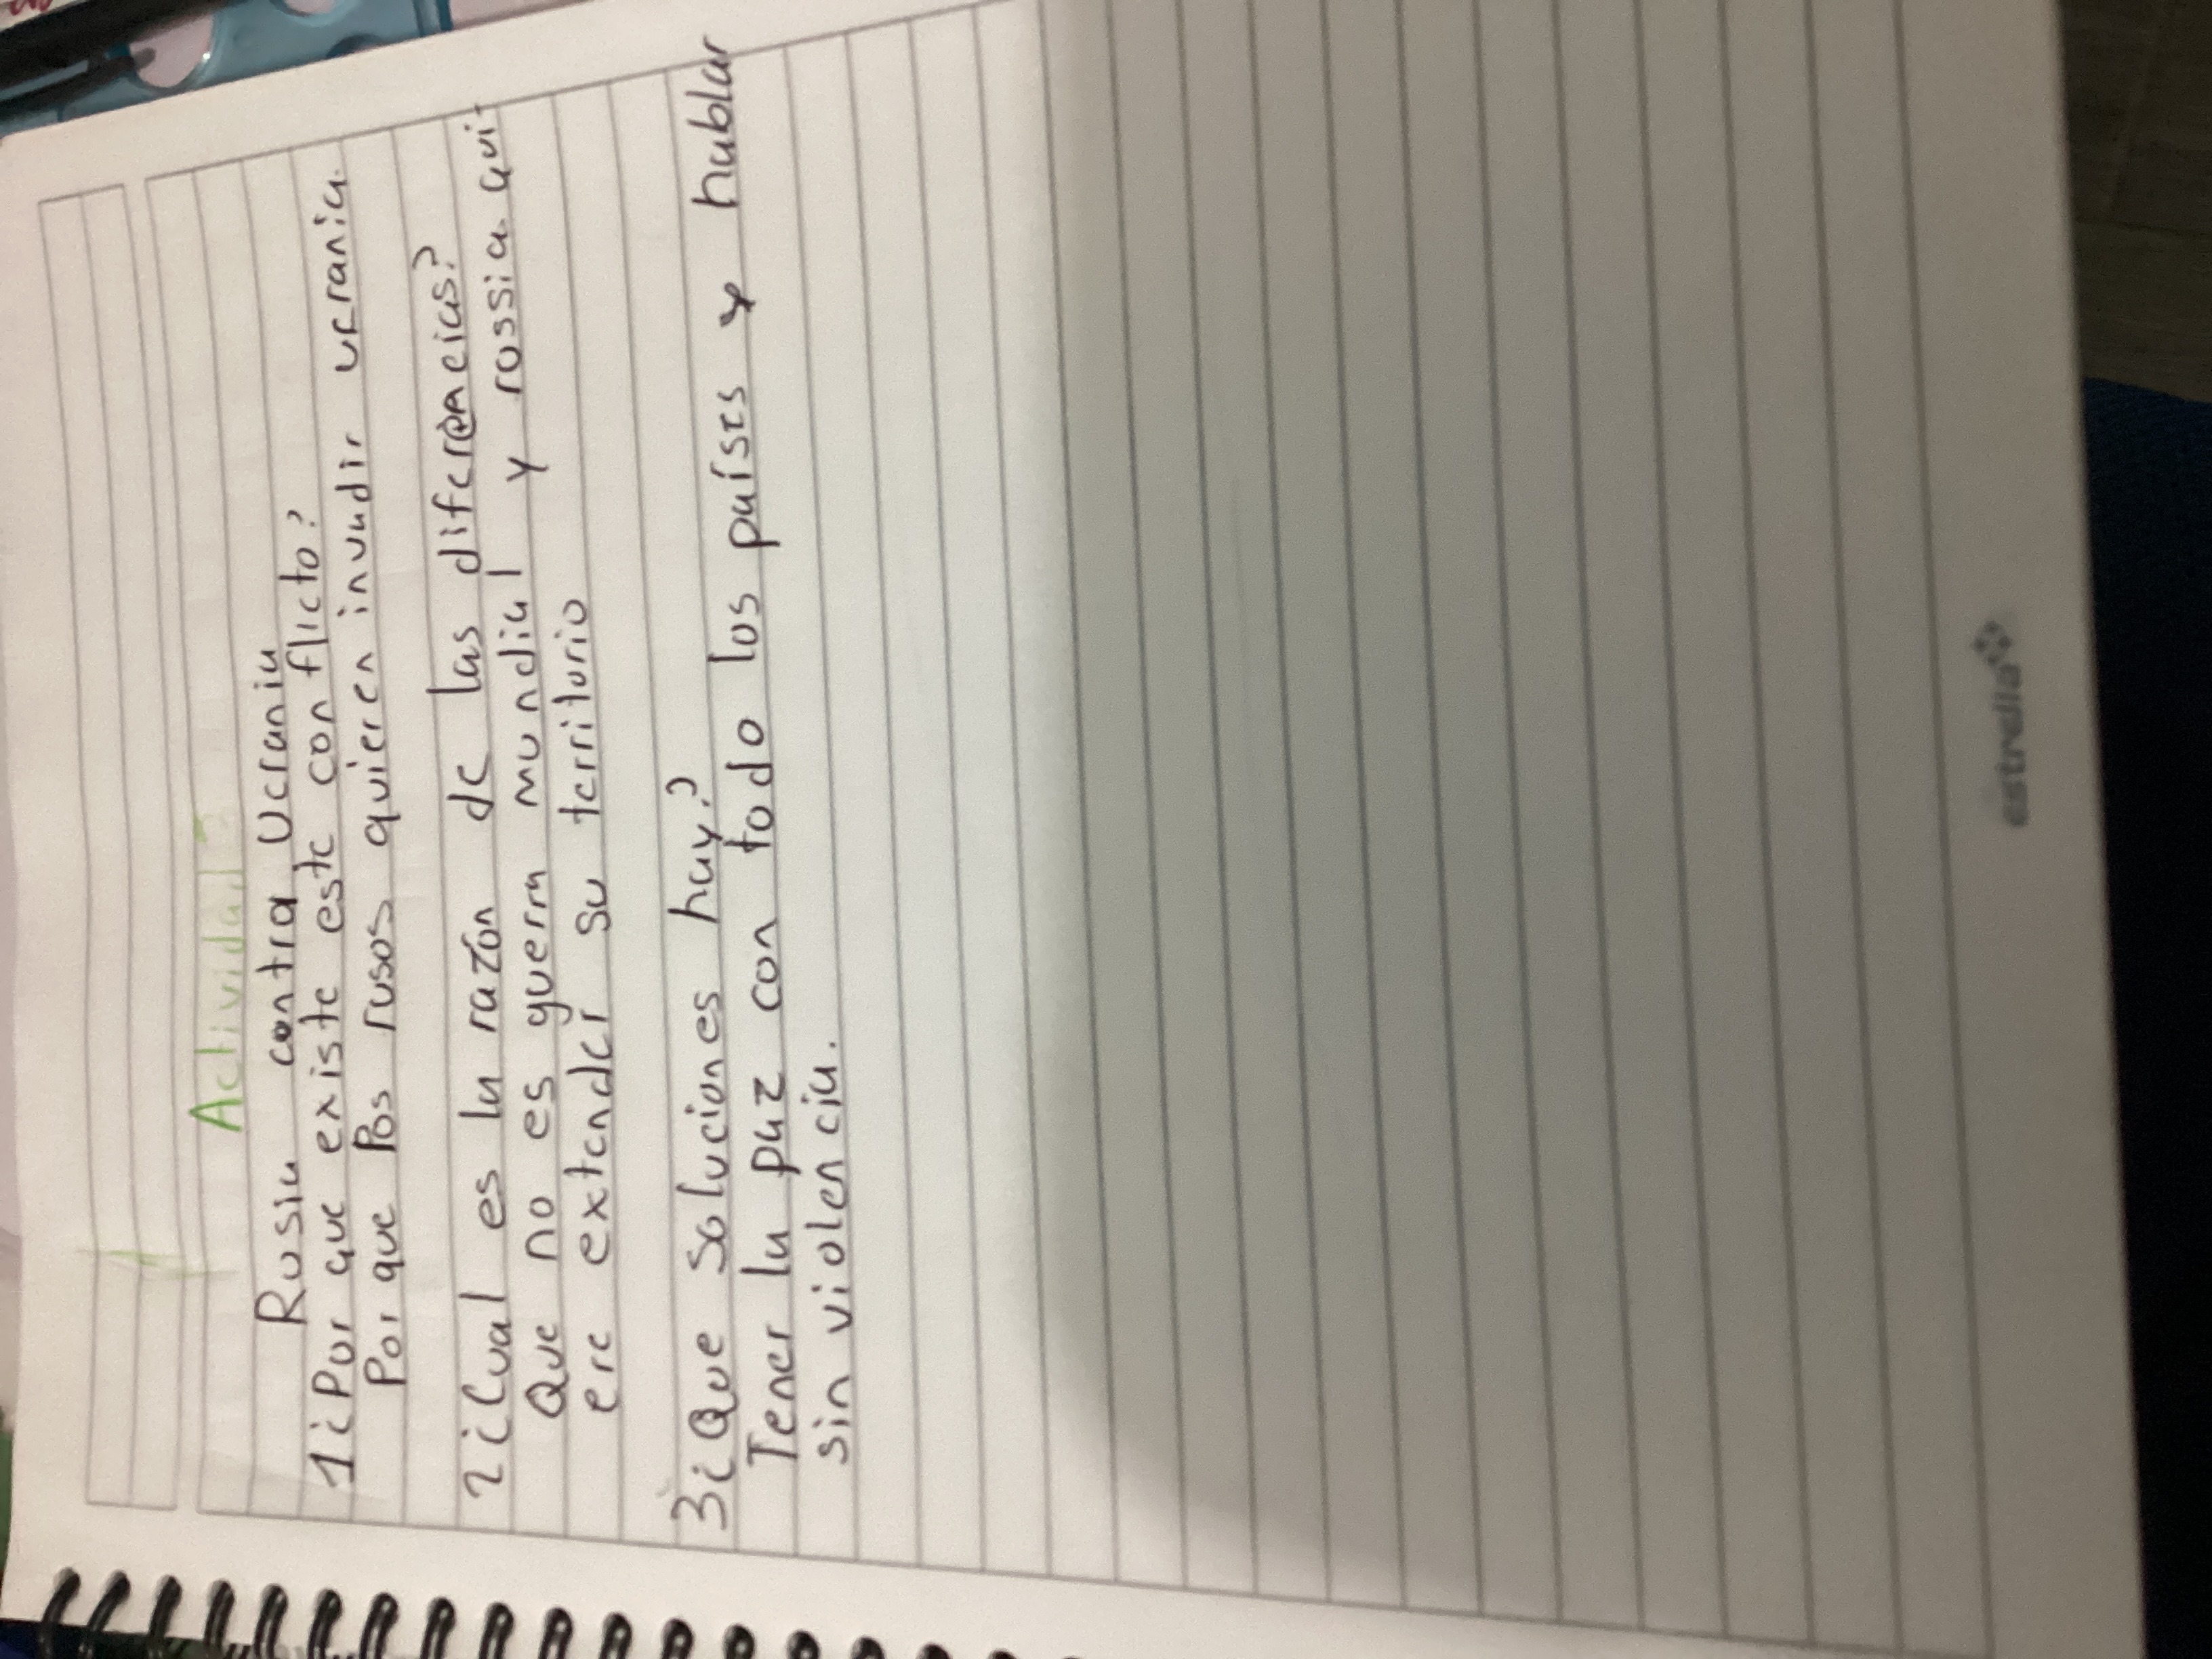 Actividad 5
Rusia contra Ucrania
1¿Por que existe este conflicto?
Por que los rusos quieren invadir ucrania.
2¿Cual es la razón de las diferencias?
Que no es guerra mundial y rossia qui-
ere extender su territorio
3¿Que soluciones hay?
Tener la paz con todo los países y hablar
sin violencia.
estrella